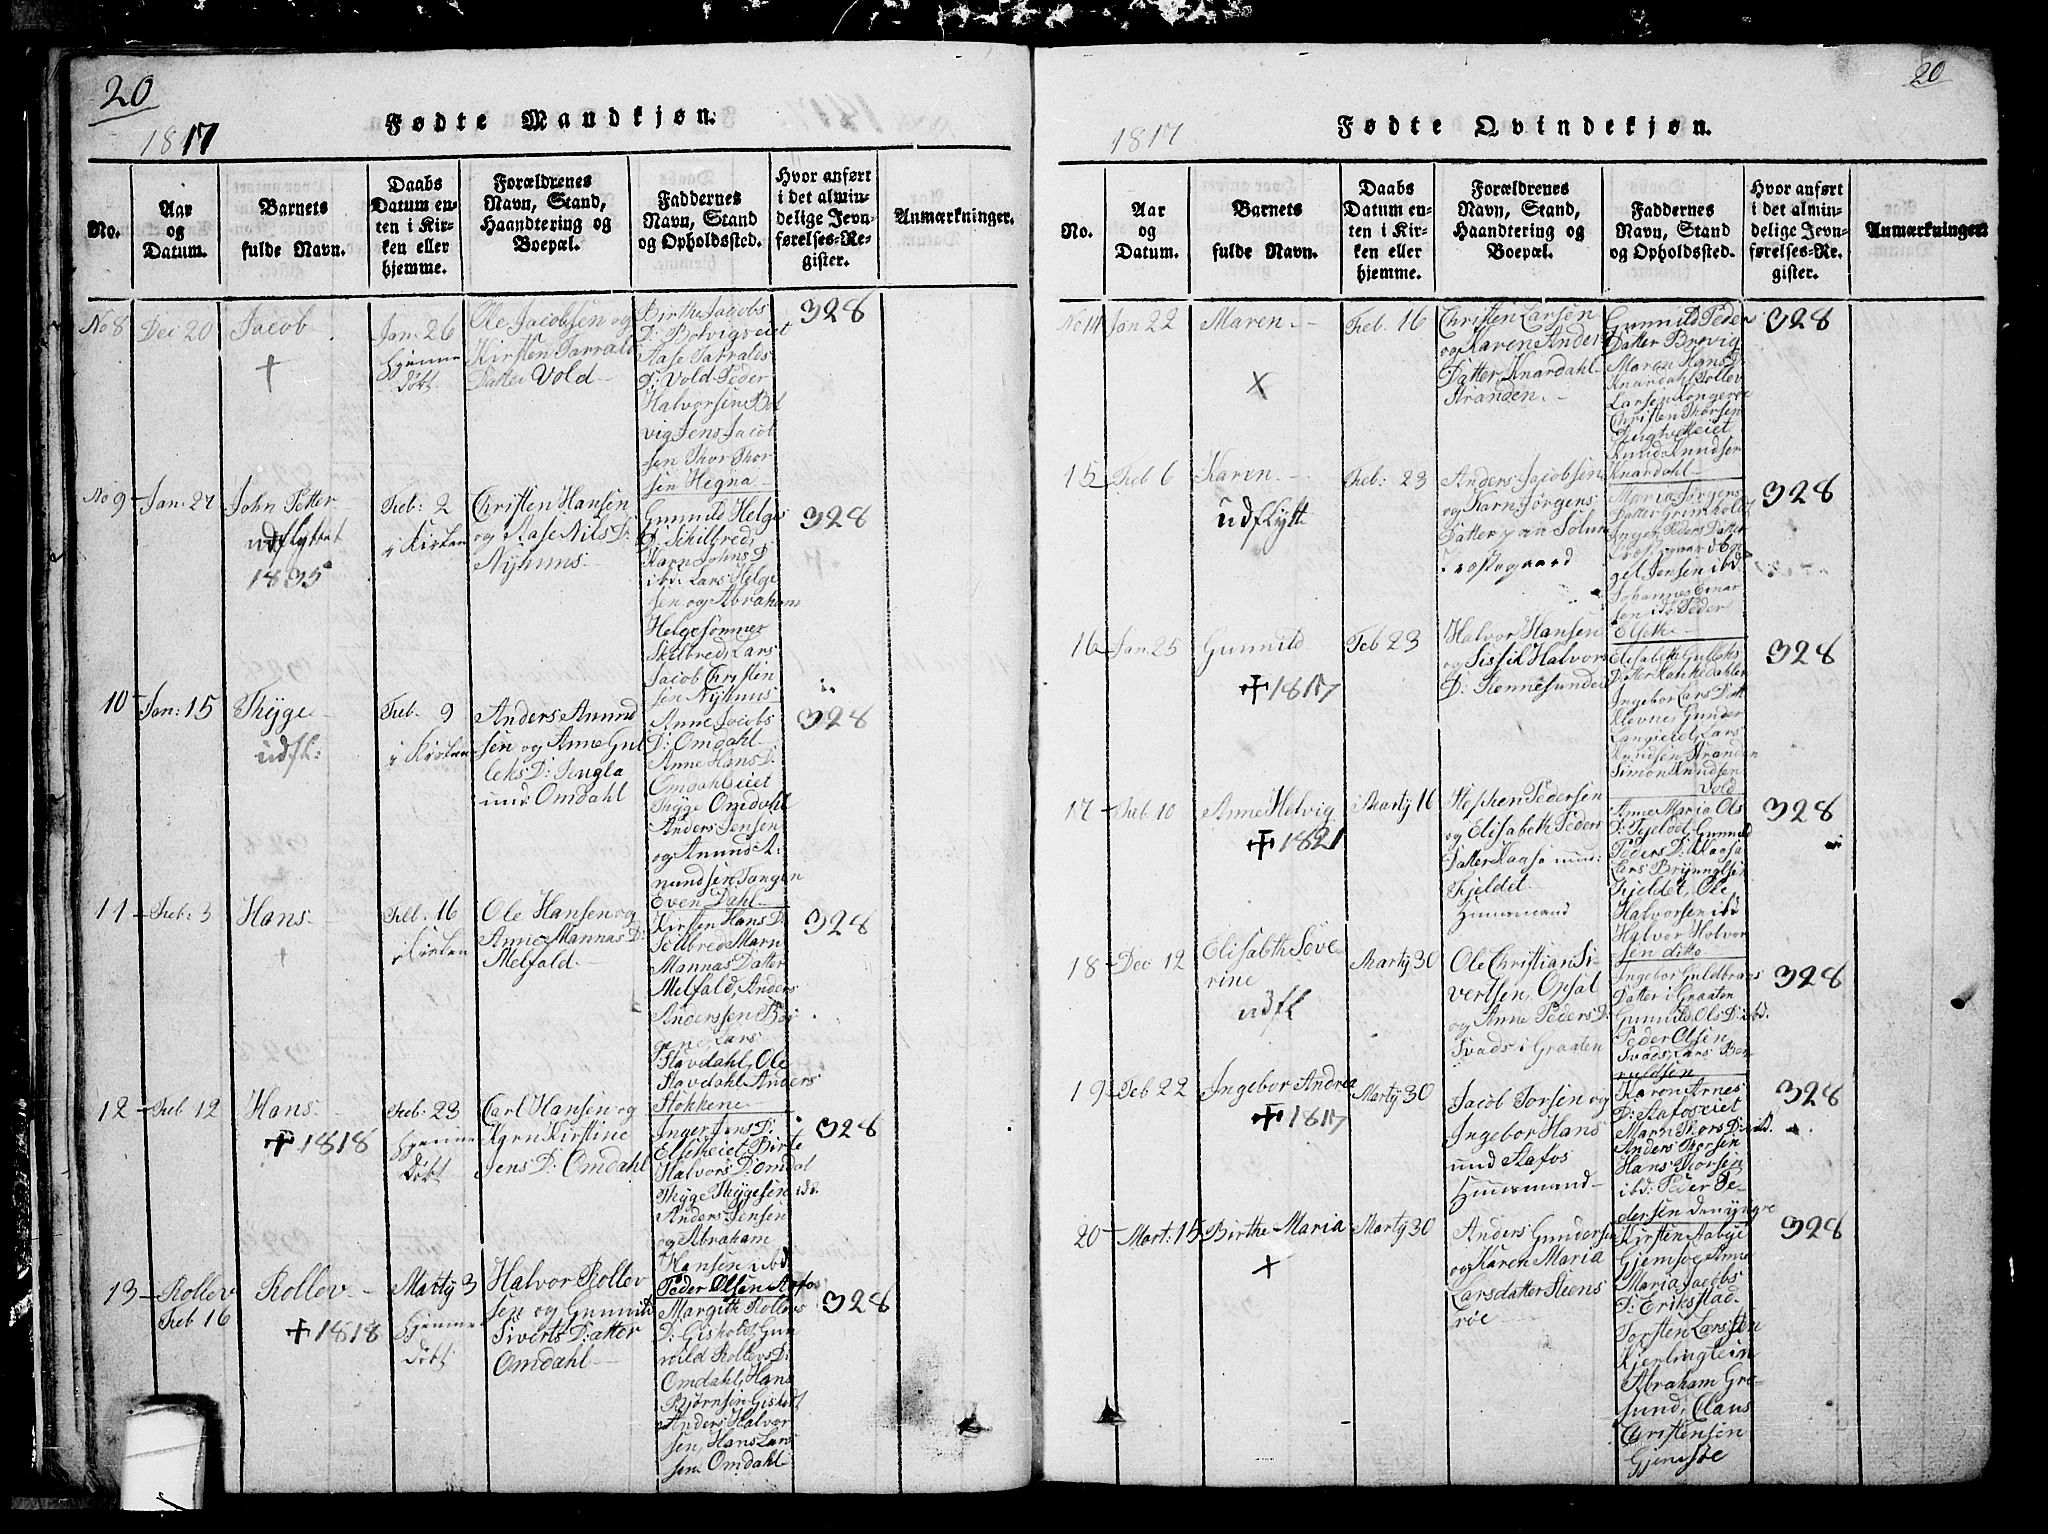 20
1817
Fødte Mandkjøn.
No.
Aar
og
Datum.
Barnets
fulde Navn.
Daabs
Datum en-
ten i Kir-
ken eller
hjemme.
Forældrenes
Navn, Stand,
Haandtering og
Boepæl.
Faddernes
Navn, Stand
og Opholdssted.
Hvor anført
i det almin-
delige Jevn-
førelses-Re-
gister.
Anmærkninger.
No 8
Dec 20
Jacob
+
Jan. 26
Hjemme
døbt
Ole Jacobsen og
Kirsten Tarrald
Datter Vold
Birthe Jacobs
D: Bolvigseiet
Aase Tarralds
D: Vold Peder
Halvorsen Bol
vig Jens Jacob
sen Thor Thor
sen Hegna
328
No 9
Jan. 27
John Petter
udflyttet
1835
Feb: 2
i Kirken
Christen Hansen
og Aase Nils D:
Nyhuus
Gunnild Helges
D: Schilbred,
Karn Johns D
ibd: Lars Helge
sen og Abraham
Helgesønner
Skilbred, Lars
Jacob Christen
sen Nyhuus
328
10
Jan: 15
Thyge
udfl:
Feb. 9
i Kirken
Anders Anund
sen og Anne Gul
leks D:
und: Omdahl
Anne Jacobs
D: Omdahl
Anne Hans D:
Omdahleiet
Thyge Omdahl
Anders Jensen
og Anund A:
nundsen Tangen
Even Dahl
328
11
Feb: 3
Hans
+
Feb. 16
i Kirken
Ole Hansen og
Anne Mannas D:
Melfald
Kirsten Hans D:
Solbred Marn
Mannas Datter
Melfald, Anders
Anderssen Bøi
gene, Lars
Stavdahl, Ole
Stavdahl Anders
Stokkene
328
12
Feb 12
Hans
+ 1818
Feb: 23
Hjemme
Døbt
Carl Hansen og
Karn Kirstine
Jens D: Omdahl
Inger Jens D:
Elseiet Birte
Halvors D: Omdal
Thyge Thygesen ibd.
Anders Jensen
og Abraham
Hansen ibd
Peder Olsen Aafos
328
13
Rollev
Feb 16
Rollev
+ 1818
Martÿ 3
Hjemme
døbt
Halvor Rollev
sen og Gunnild
Siverts Datter
Omdahl
Margith Rollevs
D: Gisholt, Gun
nild Rollevs D:
Omdahl, Hans
Bjørnsen Gisholt
Anders Halvor
sen, Hans Lars
sen Omdahl
328
20
1817
Fødte Qvindekjøn.
No.
Aar
og
Datum.
Barnets
fulde Navn.
Daabs
Datum en-
ten i Kir-
ken eller
hjemme.
Forældrenes
Navn, Stand,
Haandtering og
Boepæl.
Faddernes
Navn, Stand
og Opholdssted.
Hvor anført
i det almin-
delige Jevn-
førelses-Re-
gister.
Anmærkninger.
No 14
Jan 22
Maren
+
Feb. 16
Christen Larsen
og Karen Anders
Datter Knardahl
Stranden
Gunnild Peders
Datter Brevig
Maren Hans D:
Knardahl Rollev
Larsen
Christen Thorsen
Knud Knudsen
Knardahl
328
15
Feb 6
Karen
udflytt
Feb: 23
Anders Jacobsen
og Karn Jørgens
Datter paa Solum
Præstegaard
Maria Jørgens
Datter Grimholt
Inger Peders Datter
Præstegaard
gel Jensen ibd.
Johannes Einar
sen ibd Peder
Elseth
328
16
Jan. 25
Gunnild
+ 1817
Feb 23
Halvor Hansen
og Sissil Halvors
D: Rennesundeiet
Elisabethe Gulleks
Datter
Ingebor Lars Datt
Klevnes Gunder
Langseiet, Lars
Knudsen Stranden
Simon Knudsen
Vold
328
17
Feb. 10
Anne Helvig
+ 1821
Martÿ 16
Stephen Pedersen
og Elisabeth Peders
Datter Kaasa und:
Kjeldet
Huusmand
Anne Maria Ols
D: Gunnild
Peders D: Kaasa
Lars Brynnelsen
Kjeldet, Ole
Halvorsen ibd
Halvor Halvor
sen ditto
328
18
Dec 12
Elisabeth Seve
rine
udfl
Martÿ 30
Ole Christian Si-
vertsen, Opsal
og Anne Peders D:
Svads i Graaten
Ingebor Guldbrans
Datter i Graaten
Gunnild Ols D: ibd.
Peder Olsen
Svads, Lars Ber
nuldsen
328
19
Feb 22
Ingebor Andrea
+ 1817
Martÿ 30
Jacob Torsen og
Ingebor Hans
und Aafos
Huusmand
Karen Arnes
D: Aafoseiet
Marn Thors D: ibd.
Anders Thorsen
Hans Thorsen
ibd: Peder Pe-
dersen den yngre
328
20
Mart: 15
Birthe Maria
+
Martÿ 30
Anders Gundersen
og Karen Maria
Larsdatter Steens
røe
Kirsten Aabye
Gjemsøe Anne
Maria Jacobs
D: Erikstad
Torsten Larssen
Kjerlingtein
Abraham Gra-
sund, Claus
Christensen
Gjemsøe
328